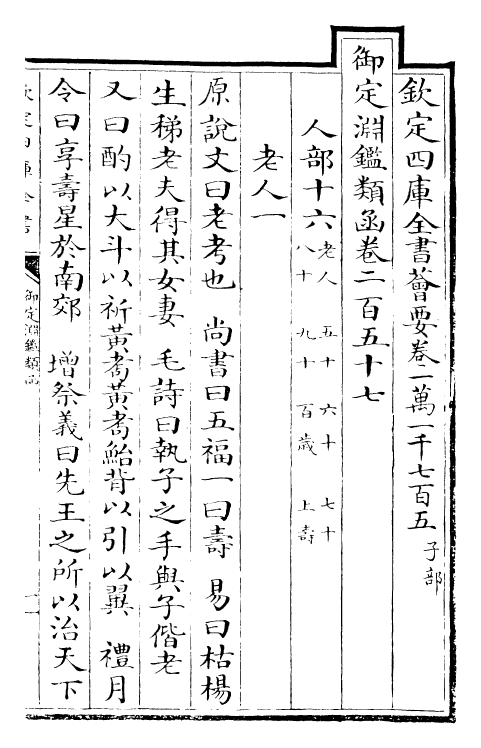 欽定四庫全書薈要卷二萬一千七百五 子部
御定淵鑑類函卷二百五十七
人部十六 老人 五十 六十 七十 八十 九十 百歲 上壽
老人一
原說文曰老考也 尚書曰五福一曰壽 易曰枯楊
生稊老夫得其女妻 毛詩曰執子之手與子偕老
又曰酌以大斗以祈黃耇黃耇鮐背以引以翼 禮月
令曰享壽星於南郊 增祭義曰先王之所以治天下
御定淵鑑類函